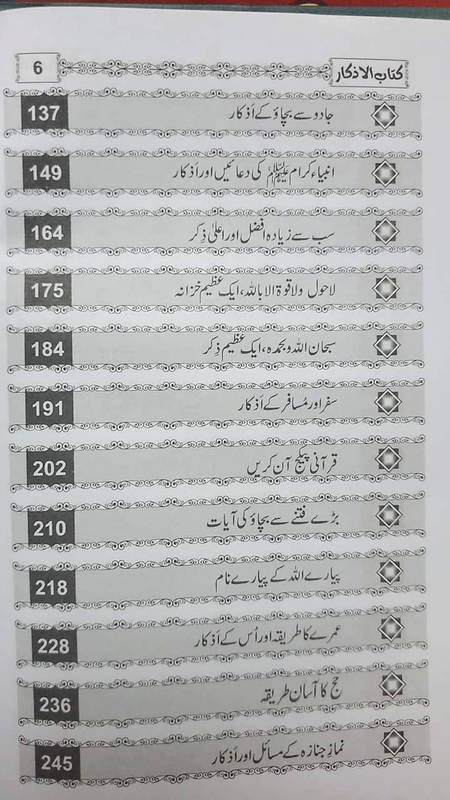 کتاب الاذکار 6
جادو سے بچاؤ کے اَذکار 137
انبیاء کرام ﷺ کی دعائیں اور اَذکار 149
سب سے زیادہ افضل اور اعلیٰ ذِکر 164
لاحول ولاقوۃ الا باللہ، ایک عظیم خزانہ 175
سبحان اللہ وبحمدہ، ایک عظیم ذِکر 184
سفر اور مُسافر کے اَذکار 191
قرآنی پیکیج آن کریں 202
بڑے فتنے سے بچاؤ کی آیات 210
پیارے اللہ کے پیارے نام 218
عمرے کا طریقہ اور اُس کے اَذکار 228
حج کا آسان طریقہ 236
نمازِ جنازہ کے مسائل اور اَذکار 245